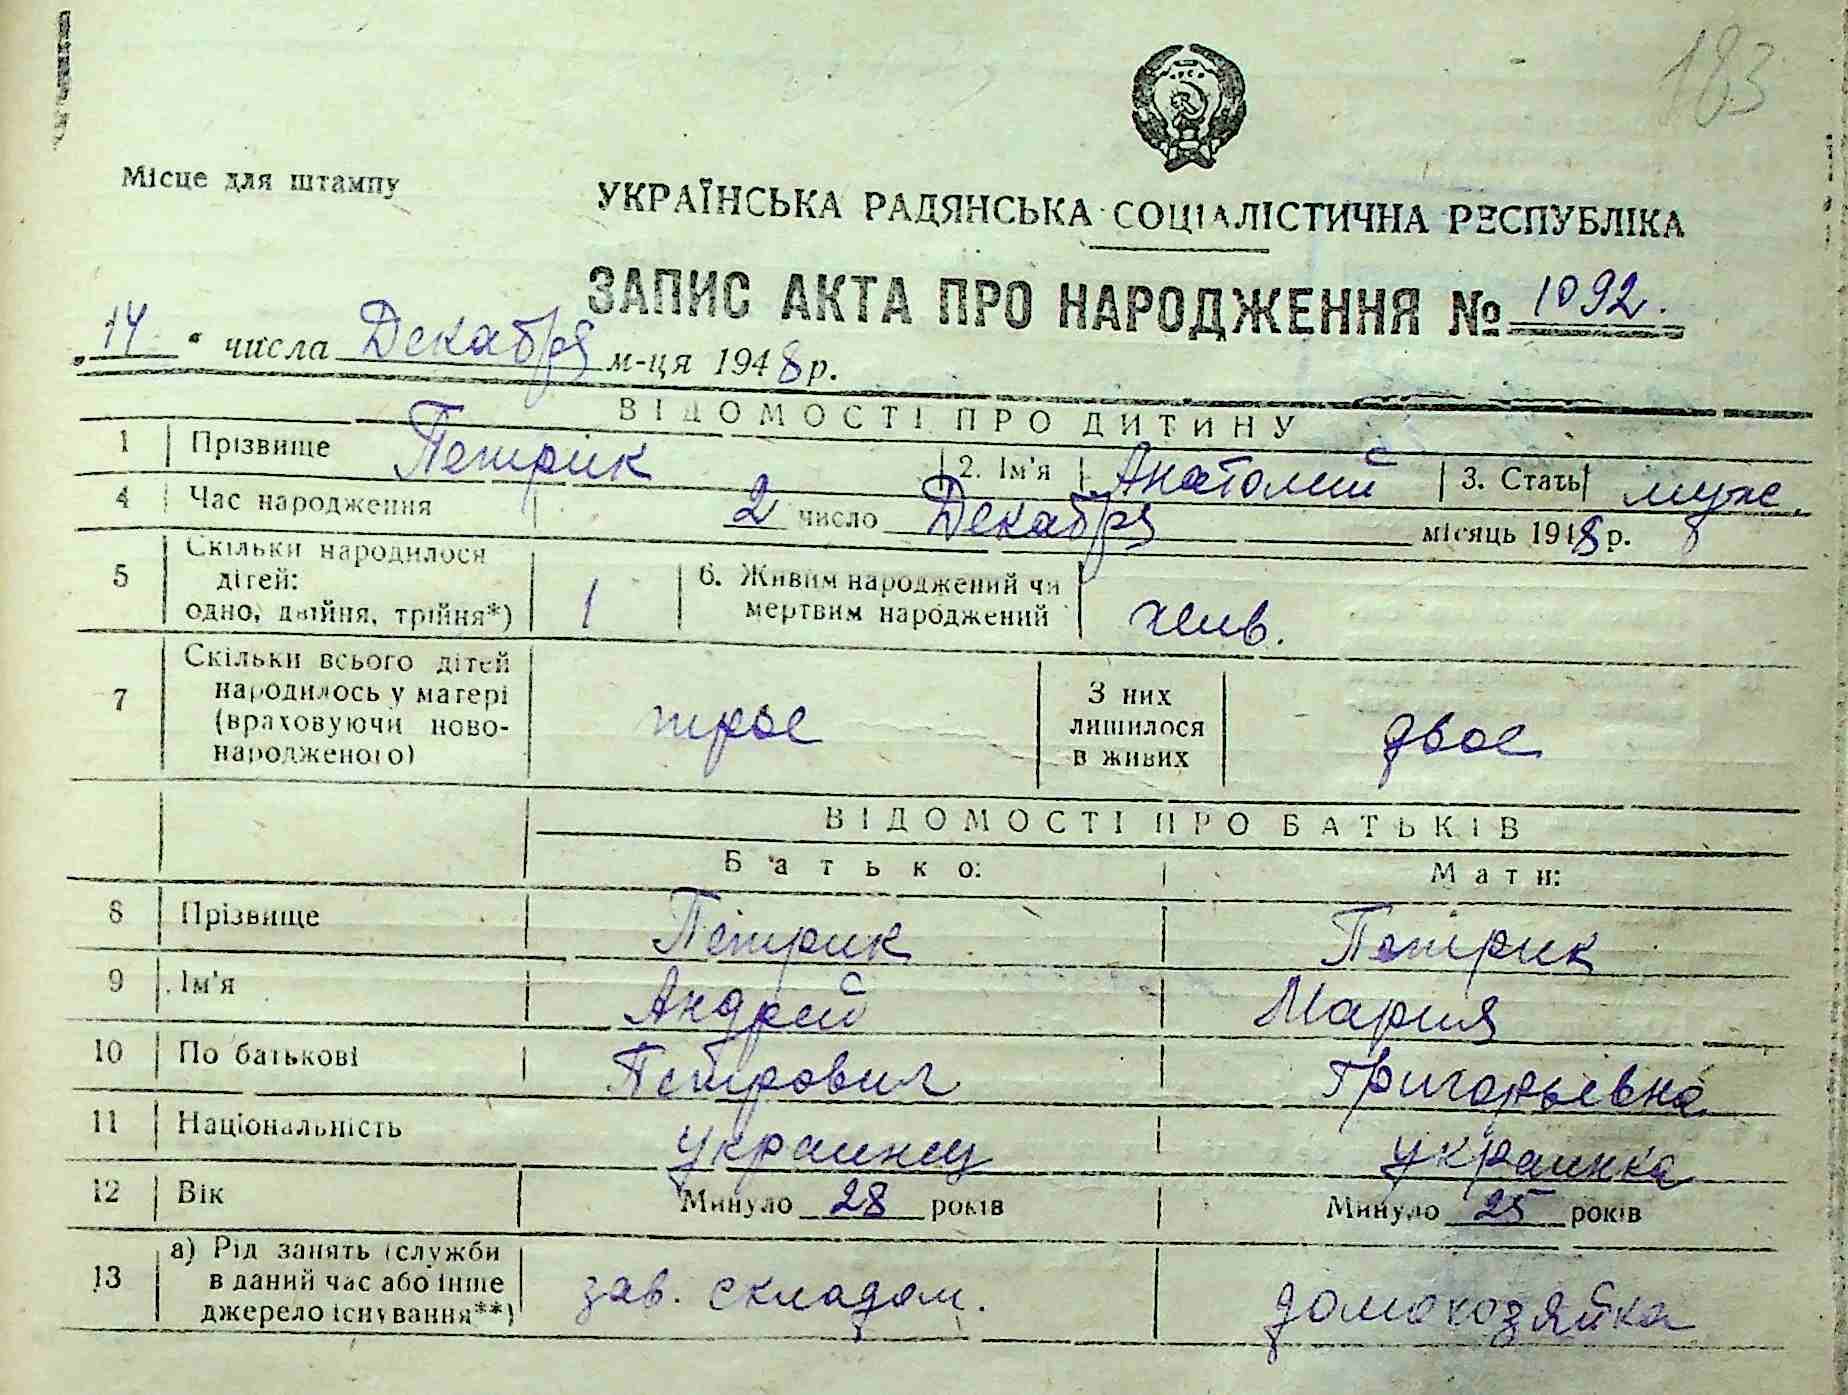 183
Місце для штампу
УКРАЇНСЬКА РАДЯНСЬКА СОЦІАЛІСТИЧНА РЕСПУБЛІКА
ЗАПИС АКТА ПРО НАРОДЖЕННЯ № 1092.
„14“ числа Декабря м-ця 1948 р.
ВІДОМОСТІ ПРО ДИТИНУ
1 Прізвище Петрик 2. Ім'я Анатолий 3. Стать муж.
4 Час народження 2 число Декабря місяць 1948 р.
5 Скільки народилося
дітей:
одно, двійня, трійня*) 1 6. Живим народжений чи
мертвим народжений жив.
7 Скільки всього дітей
народилось у матері
(враховуючи ново-
народженого) трое З них
лишилося
в живих двое
ВІДОМОСТІ ПРО БАТЬКІВ
Батько: Мати:
8 Прізвище Петрик Петрик
9 Ім'я Андрей Мария
10 По батькові Петрович Григорьевна
11 Національність украинец украинка
12 Вік Минуло 28 років Минуло 25 років
13 а) Рід занять (служби
в даний час або інше
джерело існування**) зав. складом. домохозяйка